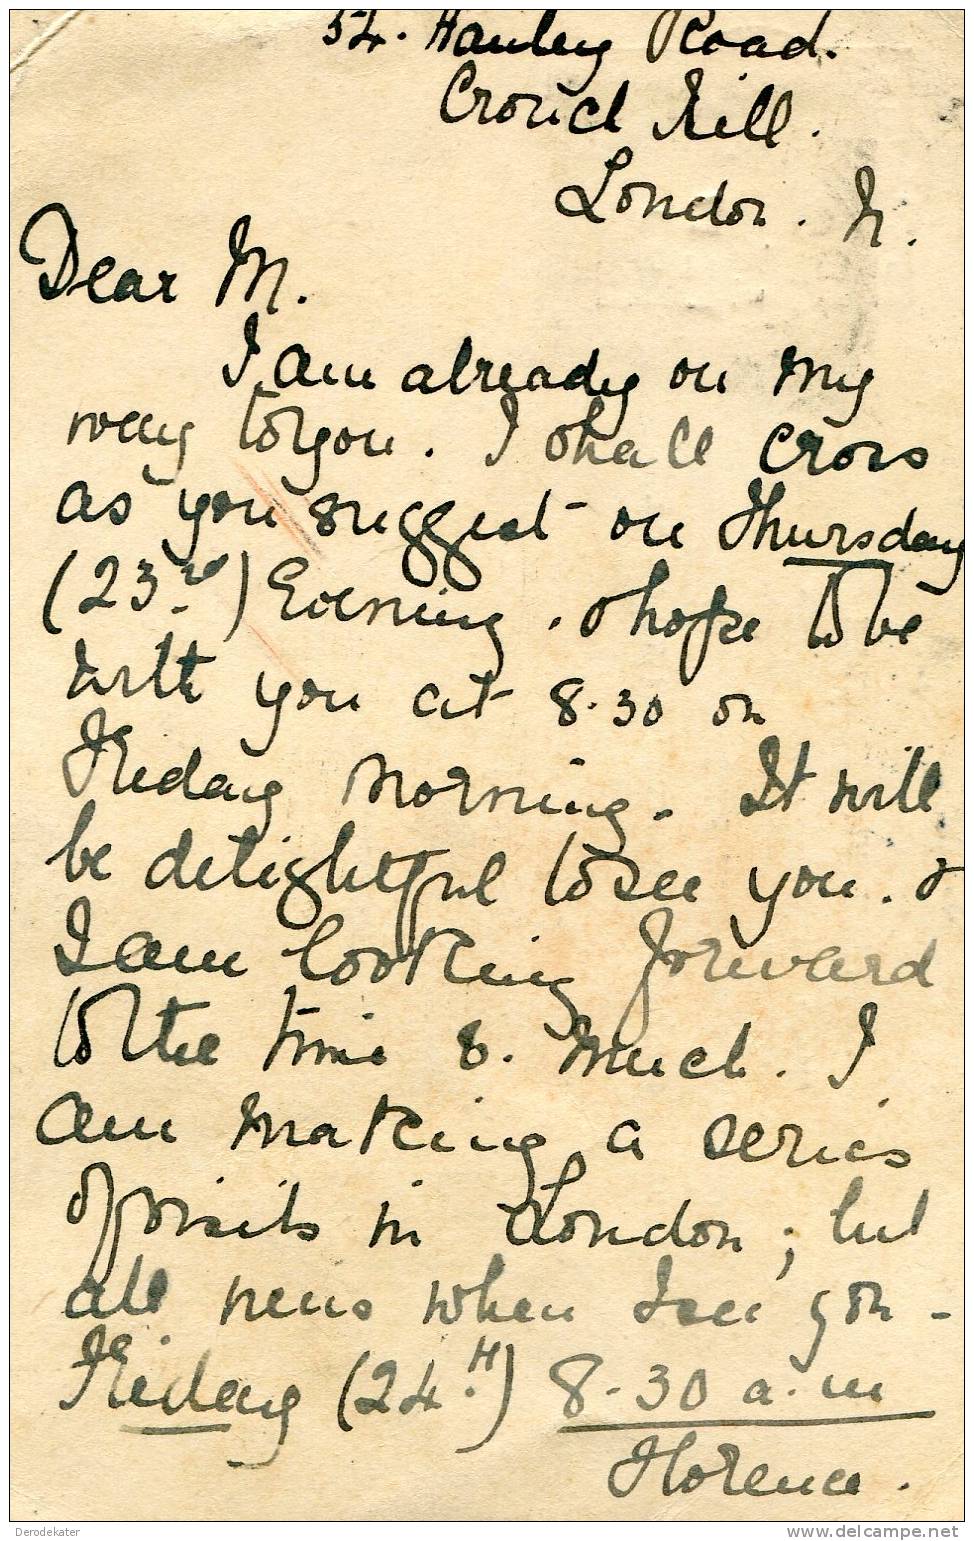 54. Hanley Road.
Crouch Hill.
London. N.
Dear M.
I am already on my
way to you. I shall cross
as you suggest on Thursday
(23rd) Evening. & hope to be
with you at 8.30 on
Friday morning. It will
be delightful to see you. &
I am looking forward
to the time v. much. I
am making a series
of visits in London; but
all news when I see you -
Friday (24th) 8.30 a.m
Florence.
Derodekater
www.delcampe.net